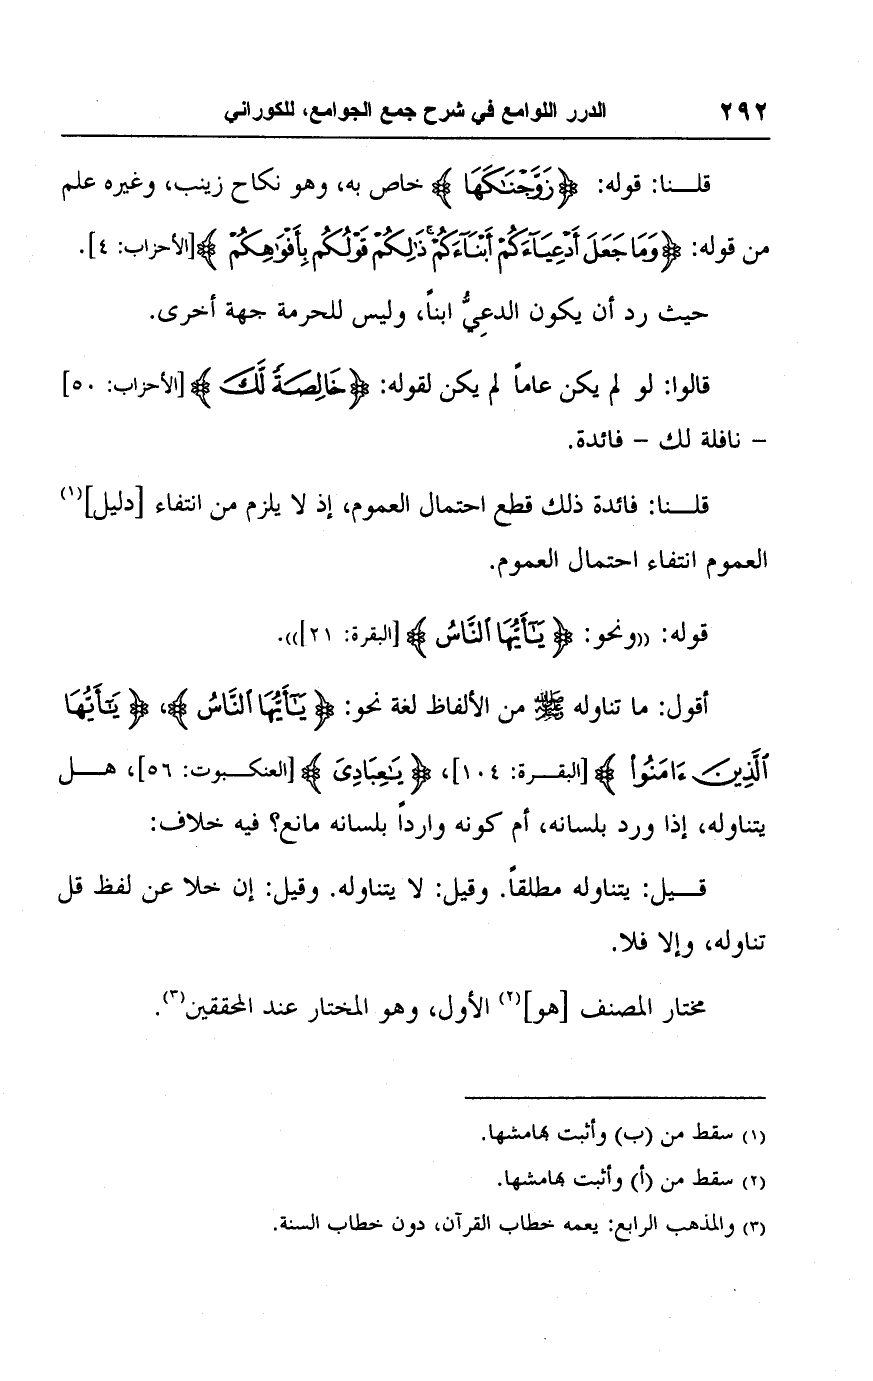 ٢٩٢ الدرر اللوامع في شرح جمع الجوامع، للكوراني
قلـــنا: قوله: ﴿زَوَّجْنَٰكَهَا﴾ خاص به، وهو نكاح زينب، وغيره علم
من قوله: ﴿وَمَا جَعَلَ أَدْعِيَآءَكُمْ أَبْنَآءَكُمْ ذَٰلِكُمْ قَوْلُكُم بِأَفْوَٰهِكُمْ﴾ [الأحزاب: ٤].
حيث رد أن يكون الدعيُّ ابناً، وليس للحرمة جهة أخرى.
قالوا: لو لم يكن عاماً لم يكن لقوله: ﴿خَالِصَةً لَّكَ﴾ [الأحزاب: ٥٠]
– نافلة لك – فائدة.
قلـــنا: فائدة ذلك قطع احتمال العموم، إذ لا يلزم من انتفاء [دليل](١)
العموم انتفاء احتمال العموم.
قوله: ((ونحو: ﴿يَٰٓأَيُّهَا ٱلنَّاسُ﴾ [البقرة: ٢١])).
أقول: ما تناوله ﷺ من الألفاظ لغة نحو: ﴿يَٰٓأَيُّهَا ٱلنَّاسُ﴾، ﴿يَٰٓأَيُّهَا
ٱلَّذِينَ ءَامَنُوا۟﴾ [البقـــرة: ١٠٤]، ﴿يَٰعِبَادِىَ﴾ [العنكـــبوت: ٥٦]، هـــل
يتناوله، إذا ورد بلسانه، أم كونه وارداً بلسانه مانع؟ فيه خلاف:
قـــيل: يتناوله مطلقاً. وقيل: لا يتناوله. وقيل: إن خلا عن لفظ قل
تناوله، وإلا فلا.
مختار المصنف [هو](٢) الأول، وهو المختار عند المحققين(٣).
(١) سقط من (ب) وأثبت بهامشها.
(٢) سقط من (أ) وأثبت بهامشها.
(٣) والمذهب الرابع: يعمه خطاب القرآن، دون خطاب السنة.